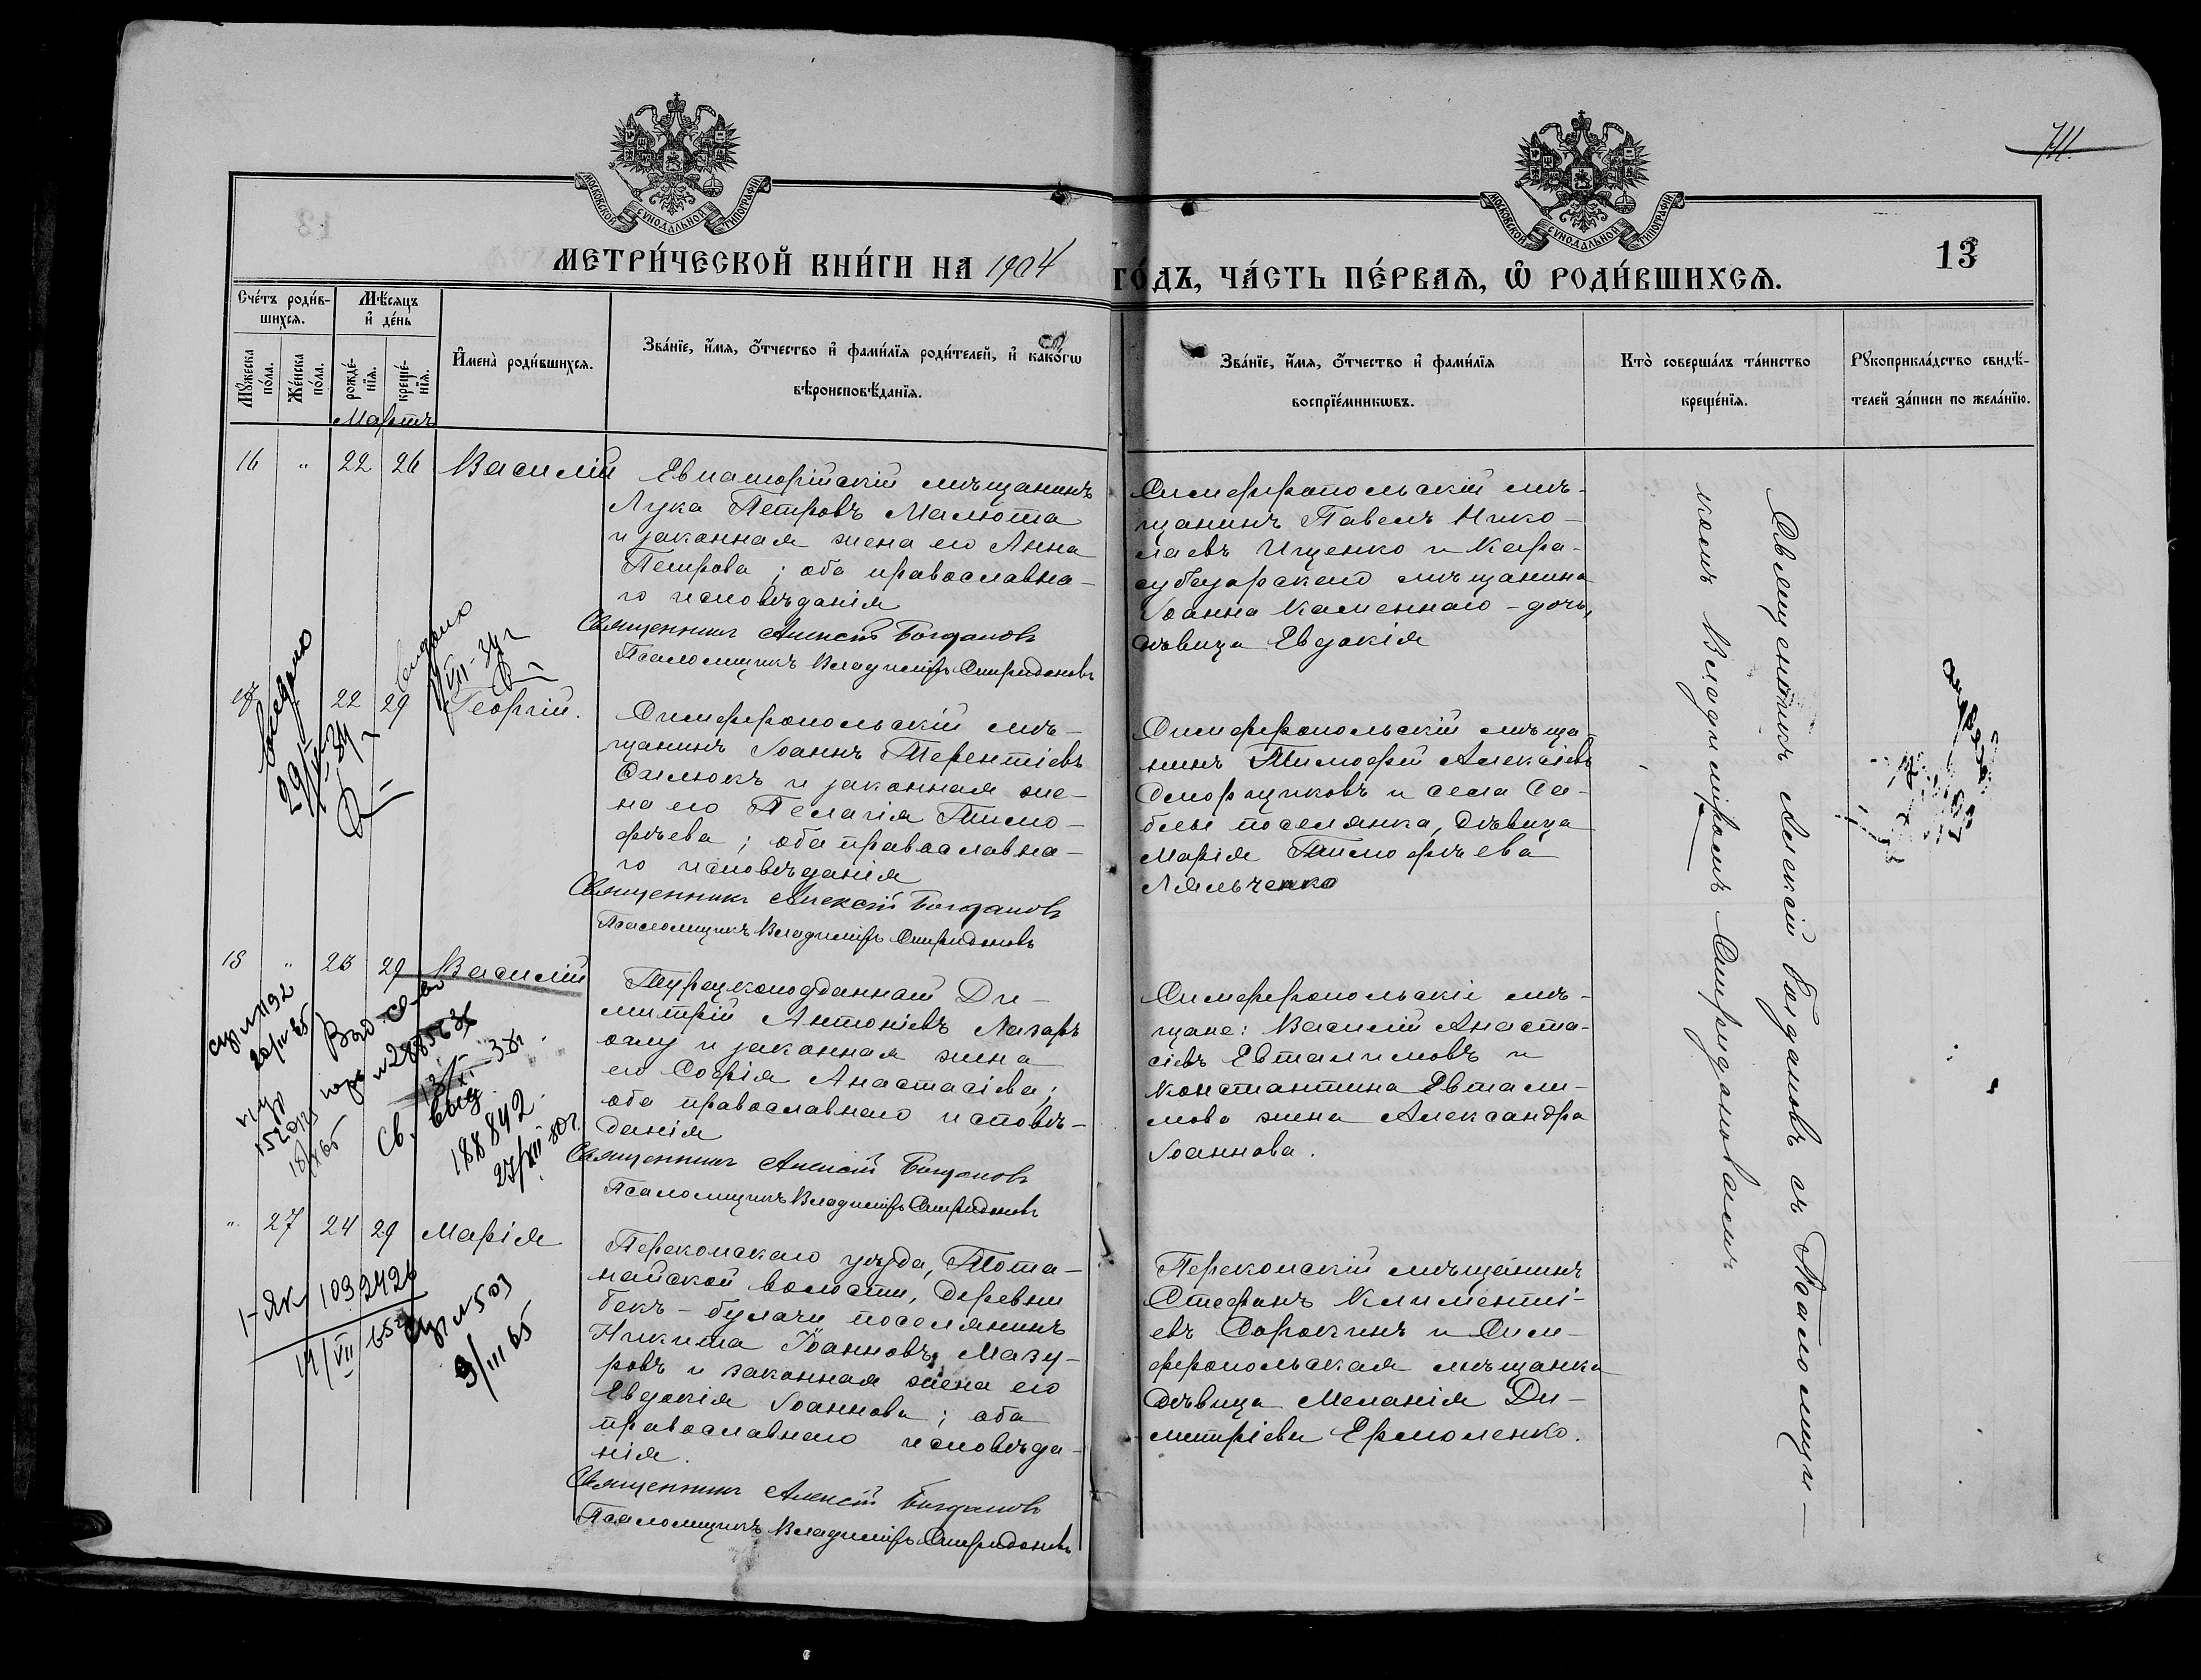 711.
МОСКОВСКОЙ СУНОДАЛЬНОЙ ТИПОГРАФІИ
МОСКОВСКОЙ СУНОДАЛЬНОЙ ТИПОГРАФІИ
13
МЕТРИ́ЧЕСКОЙ КНИ́ГИ НА 1904 ГО́ДЪ, ЧА́СТЬ ПЕ́РВАѦ, Ѿ РОДИ́ВШИХСѦ.
Сче́тъ роди́в-
шихсѧ.
Мѣ́сѧцъ
и҆ де́нь
Мꙋ́жеска
по́ла.
Же́нска
по́ла.
рожде́-
нїѧ.
креще́-
нїѧ.
И҆мена̀ роди́вшихсѧ.
Зва́нїе, и҆́мѧ, ѻ҆́тчество и҆ фами́лїѧ роди́телей, и҆ како́гѡ
вѣроисповѣ́данїѧ.
Зва́нїе, и҆́мѧ, ѻ҆́тчество и҆ фами́лїѧ
воспрїе́мникѡвъ.
Кто̀ соверша́лъ та́инство
креще́нїѧ.
Рꙋкоприкла́дство свидѣ́-
телей за́писи по жела́нїю.
Мартъ
16 " 22 26 Василій
Евпаторійскій мѣщанинъ
Лука Петровъ Малюта
и законная жена его Анна
Петрова; оба православна-
го исповѣданія
Священникъ Алексій Богдановъ
Псаломщикъ Владиміръ Спиридоновъ
Симферопольскій мѣ-
щанинъ Павелъ Нико-
лаевъ Ищенко и Кара-
субазарскаго мѣщанина
Іоанна Каменнаго - дочь,
дѣвица Евдокія
Священникъ Алексій Богдановъ съ Псаломщи-
комъ Владиміромъ Спиридоновымъ
17 22 29 Георгій.
Симферопольскій мѣ-
щанинъ Іоаннъ Терентіевъ
и законная же-
на его Пелагія Тимо-
фѣева; оба православна-
го исповѣданія
Священникъ Алексій Богдановъ
Псаломщикъ Владиміръ Спиридоновъ
Симферопольскій мѣща-
нинъ Тимофей Алексіевъ
и села Са-
блы поселянка, дѣвица
Марія Тимофѣева
Ляльченко
29/IV-34
VII-34г
18 " 23 29 Василій
Турецкоподданный Ди-
митрій Антоніевъ Лазарь
оглу и законная жена
его Софія Анастасіева;
оба православнаго исповѣ-
данія
Священникъ Алексій Богдановъ
Псаломщикъ Владиміръ Спиридоновъ
Симферопольскіе мѣ-
щане: Василій Анаста-
сіевъ Евталимовъ и
Константина Евтали-
мова жена Александра
Іоаннова.
Св. выд.
188842
27/XII 80г.
" 27 24 29 Марія
Перекопскаго уѣзда, Тота-
найской волости, деревни
Бекъ-Булачи поселянинъ
Никита Іоанновъ Мазу-
ровъ и законная жена его
Евдокія Іоаннова; оба
православнаго исповѣда-
нія.
Священникъ Алексій Богдановъ
Псаломщикъ Владиміръ Спиридоновъ
Перекопскій мѣщанинъ
Стефанъ Климентіе-
евъ Сорокинъ и Сим-
феропольская мѣщанка
дѣвица Меланія Ди-
митріева Ермоленко.
1-ЯК 1092426
N 503
9/III 65